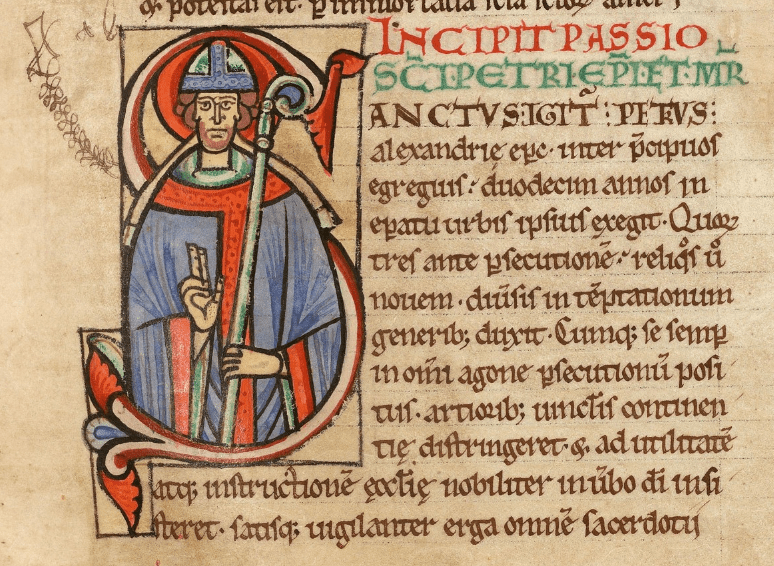 & potestas erit. p inmortalia scła scłoꝝ amen;
INCIPIT PASSIO
SC̄I PETRI EP̄I ET MR̄
SANCTVS IGIT̃ : PETRVS :
alexandrię ep̄c · inter p̄cipuos
egregius : duodecim annos in
ep̄atu urbis ipsius exegit · Quoꝝ
tres ante ꝑsecutionē : reliq̊s ů
nouem · diu̅sis in tēptationum
generib; duxit · Cumq; se semp
in om̄i agone ꝑsecutionū posi
tus · artiorib; uincl̄is continen
tię distringeret · & ad utilitatē
atq; instructionē ęcclię nobiliter in u̅bo dī insi
steret · satisq; uigilanter erga omnē sacerdotii